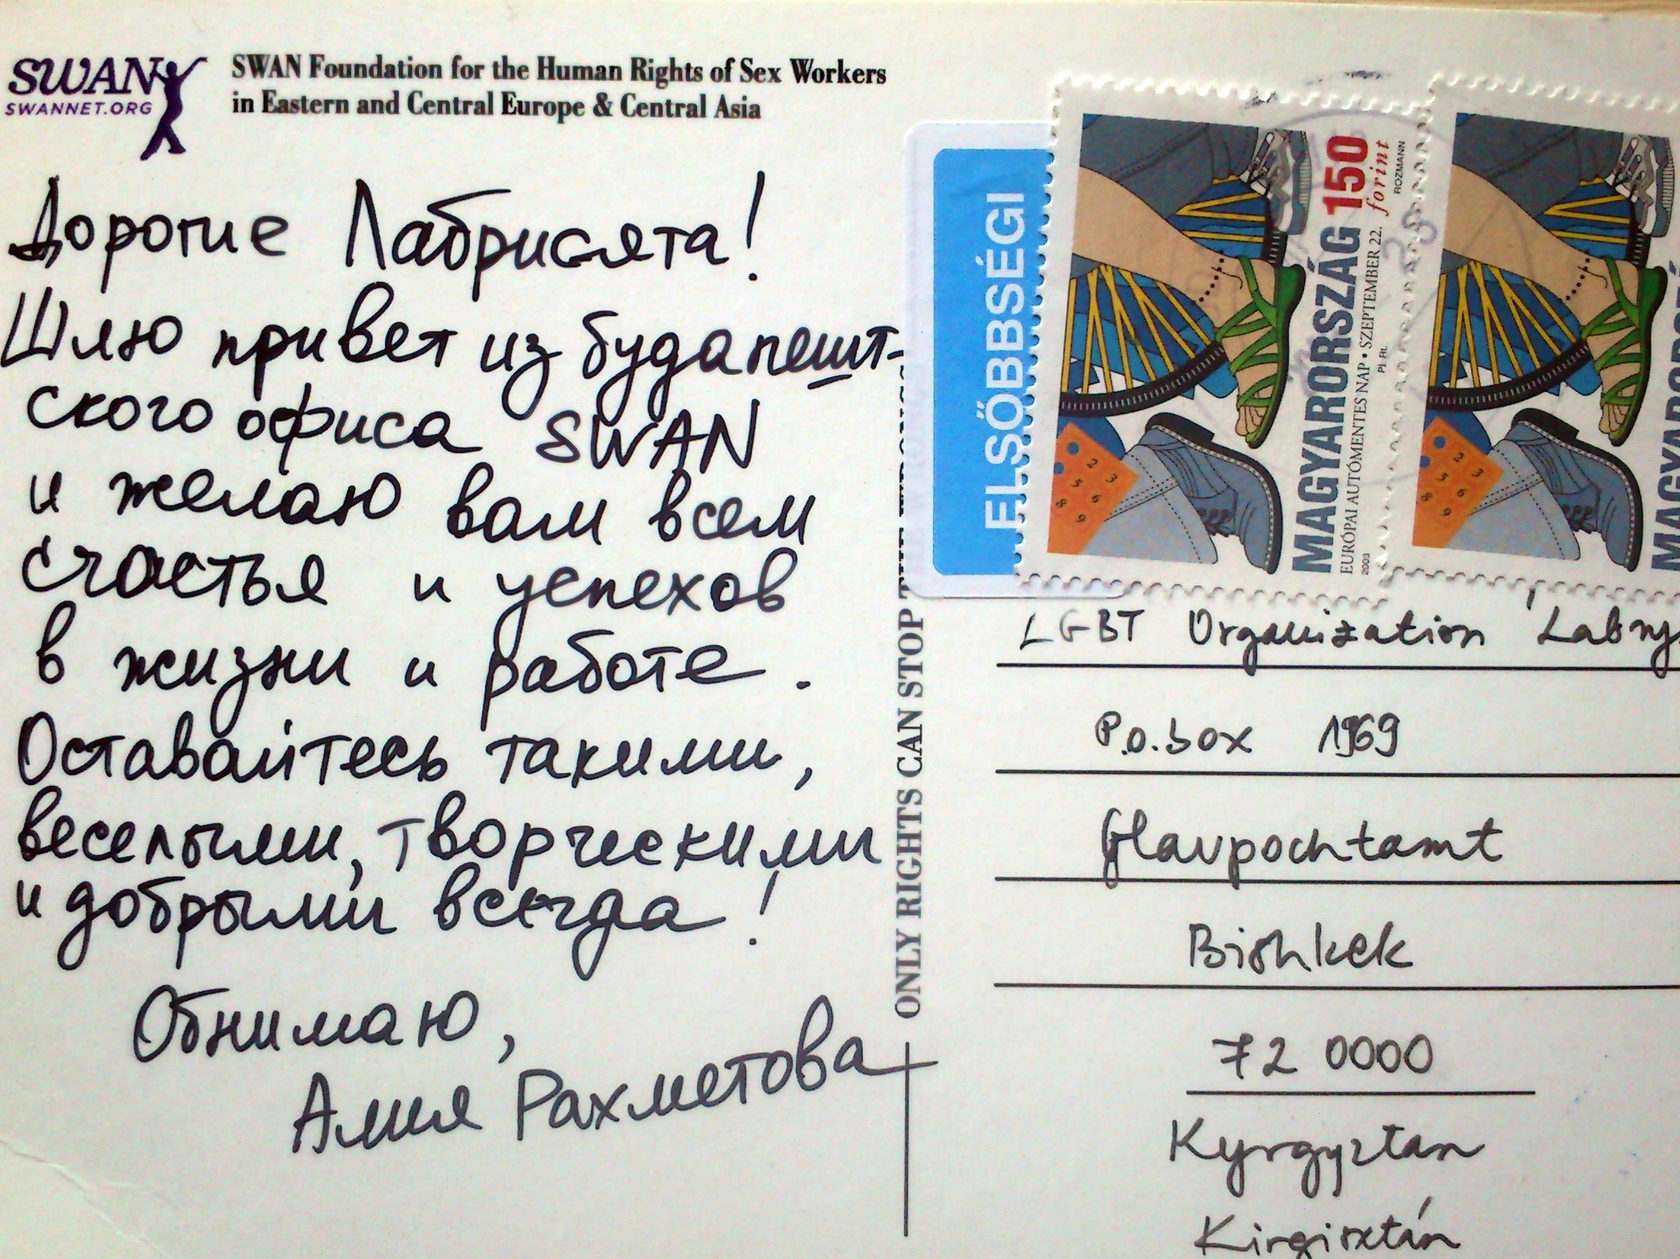 SWAN
SWANNET.ORG
SWAN Foundation for the Human Rights of Sex Workers
in Eastern and Central Europe & Central Asia
Дорогие Лабрисята!
Шлю привет из будапешт-
ского офиса SWAN
и желаю вам всем
счастья и успехов
в жизни и работе.
Оставайтесь такими,
веселыми, творческими
и добрыми всегда!
Обнимаю,
Алия Рахметова
ONLY RIGHTS CAN STOP THE WRONGS
ELSŐBBSÉGI
MAGYARORSZÁG 150 forint
EURÓPAI AUTÓMENTES NAP • SZEPTEMBER 22.
2003
ROZMANN
LGBT Organization
P.O.Box 1969
Glavpochtamt
Bishkek
72 0000
Kyrgyztan
Kirgisztán